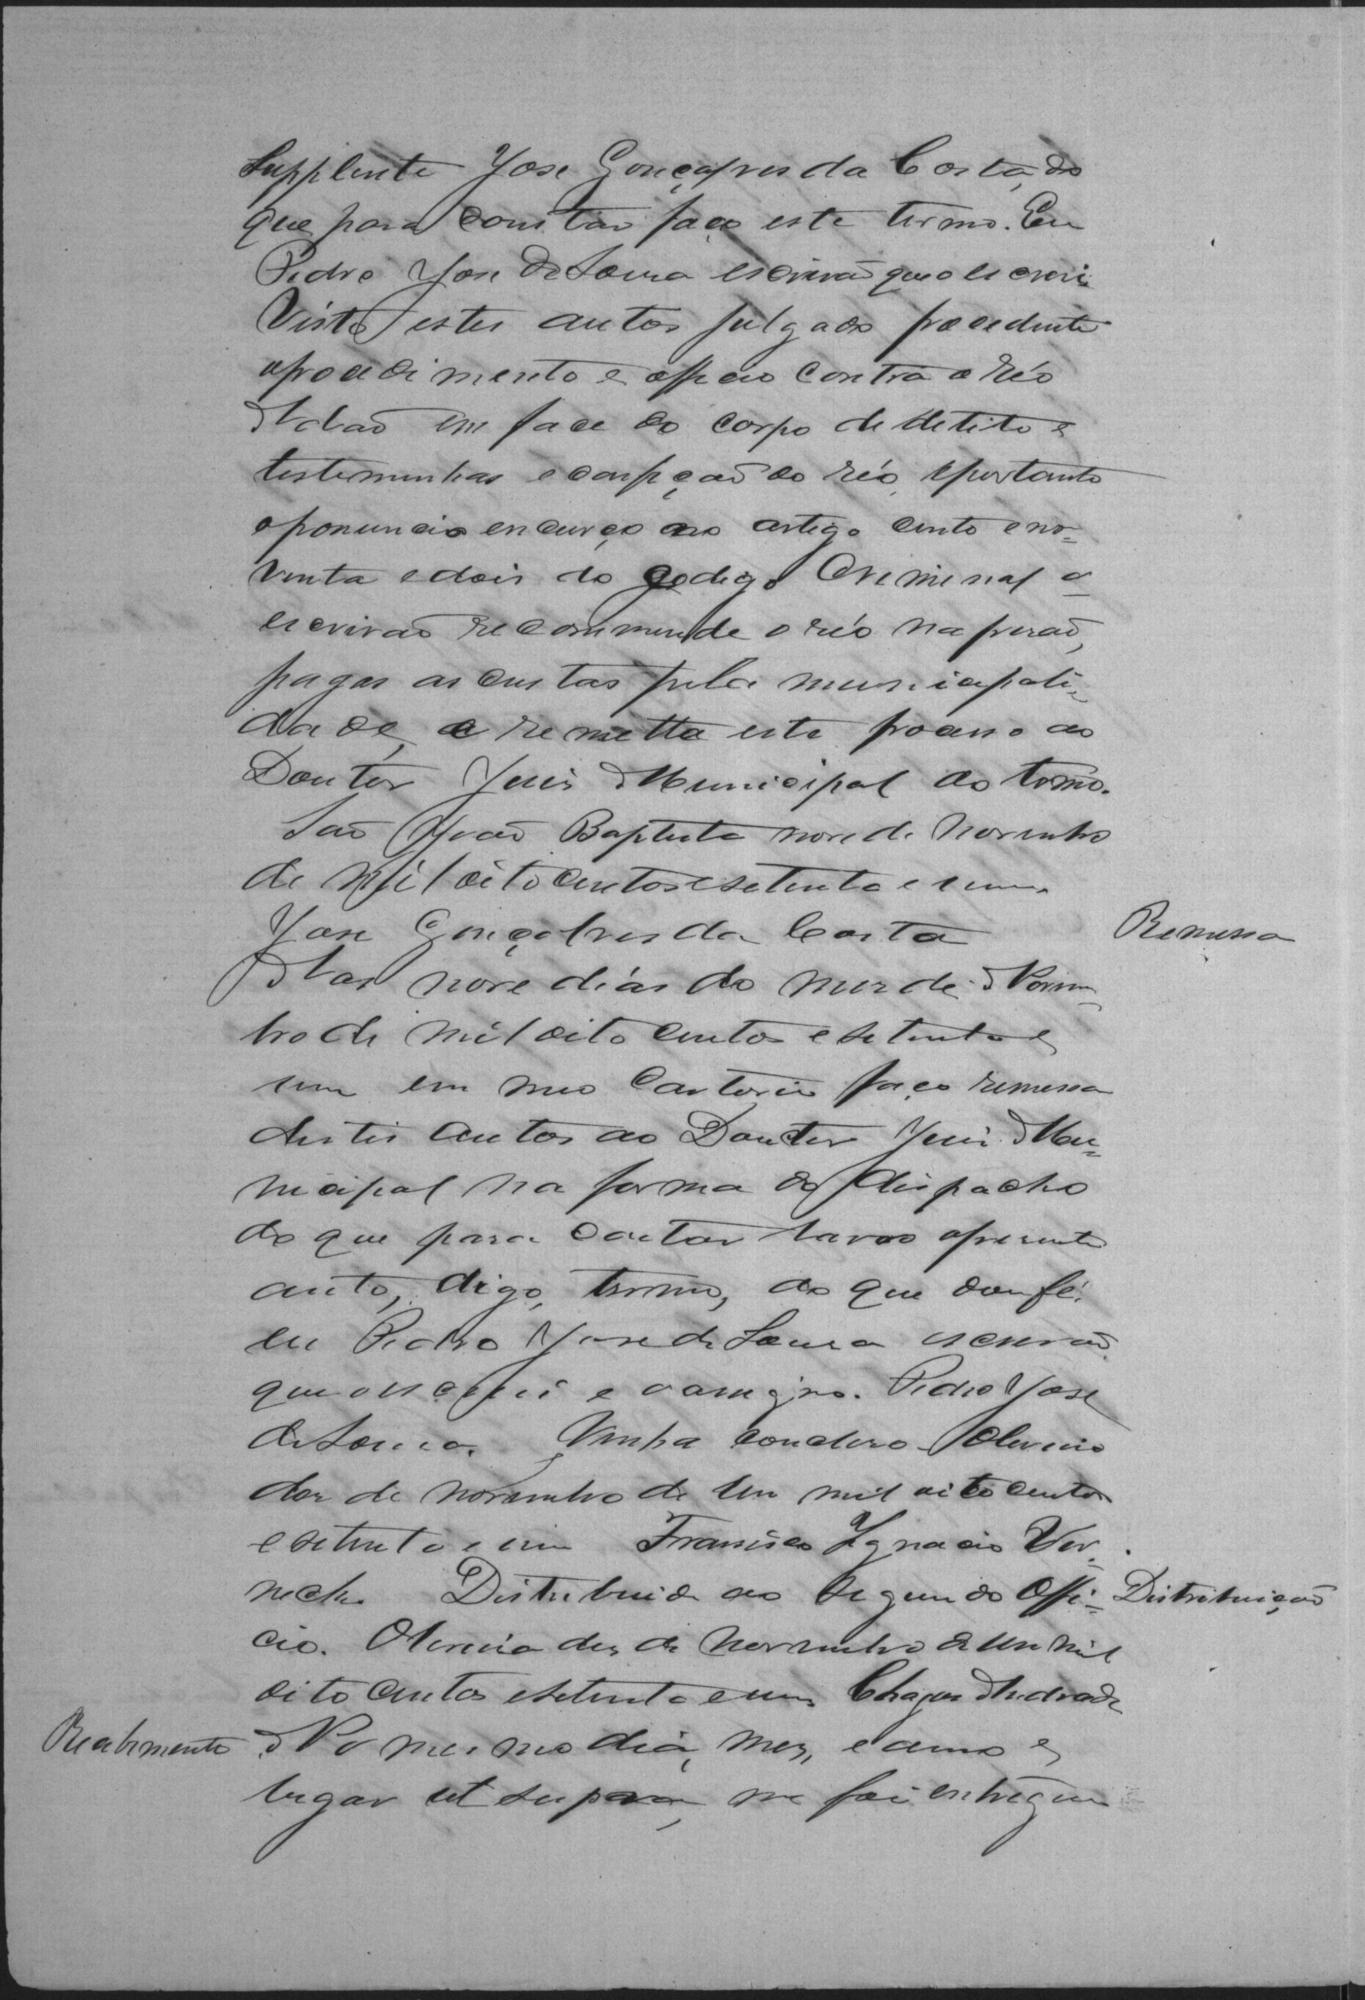 Supplente Jose Gonçalves da Costa, do
que para constar faço este termo. Eu
Pedro Jose de Souza escrivão que o escrevi
Visto estes autos julgado procedente
o procedimento e officio contra o réo
Adão em face do corpo de delicto e
testemunhas e confição do réo, e portanto
o pronuncio encurço no artigo cento e no=
venta e dois do codigo Criminal o
escrivão recommende o réo na prisão,
pagas as custas pela municipali=
dade, e remetta este processo ao
Doutor Juis Municipal do termo.
São João Baptista nove de Novembro
de mil oito centos e setenta e um.
Jose Gonçalves da Costa
Remessa
Aos nove dias do mez de Novem=
bro de mil oito centos e setenta e
um em meo Cartorio faço remessa
destes autos ao Doutor Juis Mu=
nicipal na forma do despacho
do que para contar lavro o presente
auto, digo, termo, do que dou fé.
eu Pedro Jose de Souza escrivão
que o escrevi e o assigno. Pedro Jose
de Souza. Venha concluso Oliveira
des de novembro de um mil oito centos
e setenta e um Francisco Ignacio Wer=
neck. Distribuido ao segundo Offi=
Distribuição
cio. Oliveira des de Novembro de um mil
oito centos e setenta e um Chagas Andrade
Recebimento
No mesmo dia, mez, e anno e
lugar ut supra, me foi entregue